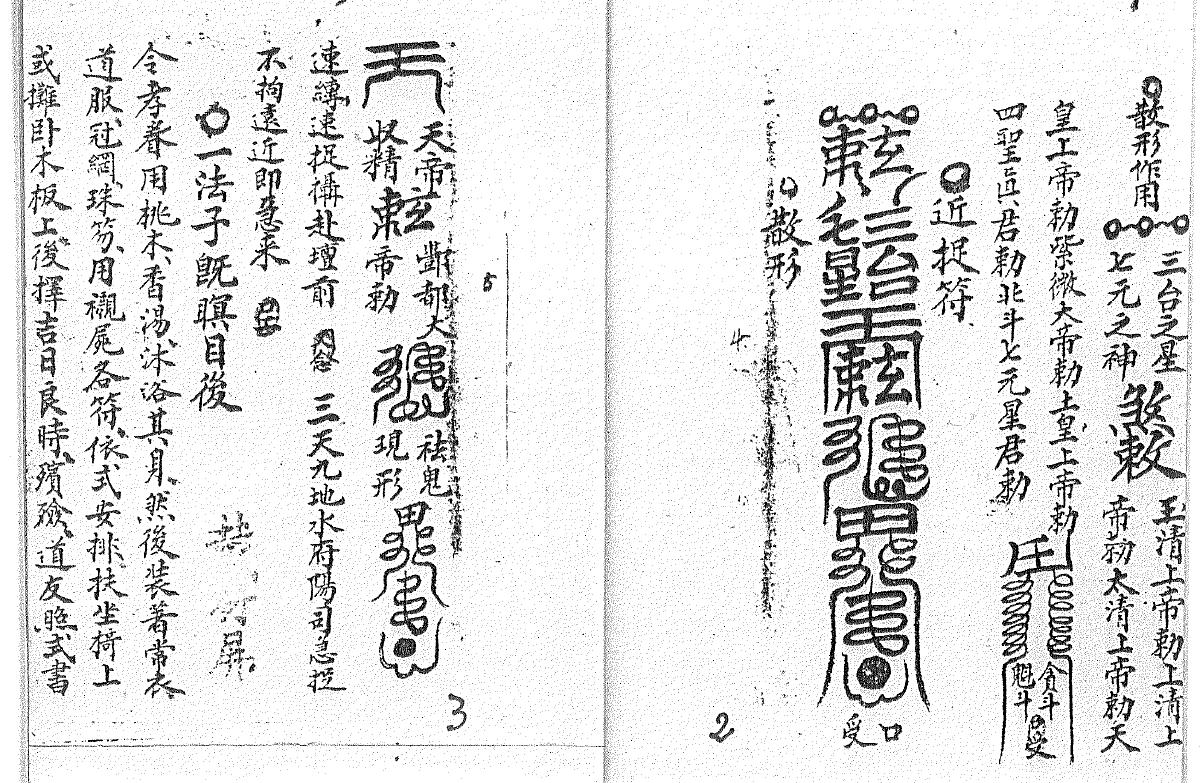 散形作用
三台之星
七元之神
煞敕
玉清上帝勅上清上
帝勅太清上帝勅天
皇上帝勅紫微大帝勅土皇上帝勅
四聖眞君勅北斗七元星君勅
貪斗
魁斗
受
近捉符
三台
七星
口
受
2
散形
4
5
天帝
收精
酆都大
帝勅
祛鬼
現形
3
速縛速捉攝赴壇前
三天九地水府陽司急捉
不拘遠近即急来
一法子既瞑目後
令孝眷用桃木香湯沐浴其身然後裝著常衣
道服冠綱珠笏用襯屍各符依式安排扶坐椅上
或攤卧木板上後擇吉日良時殯殮道友照式書